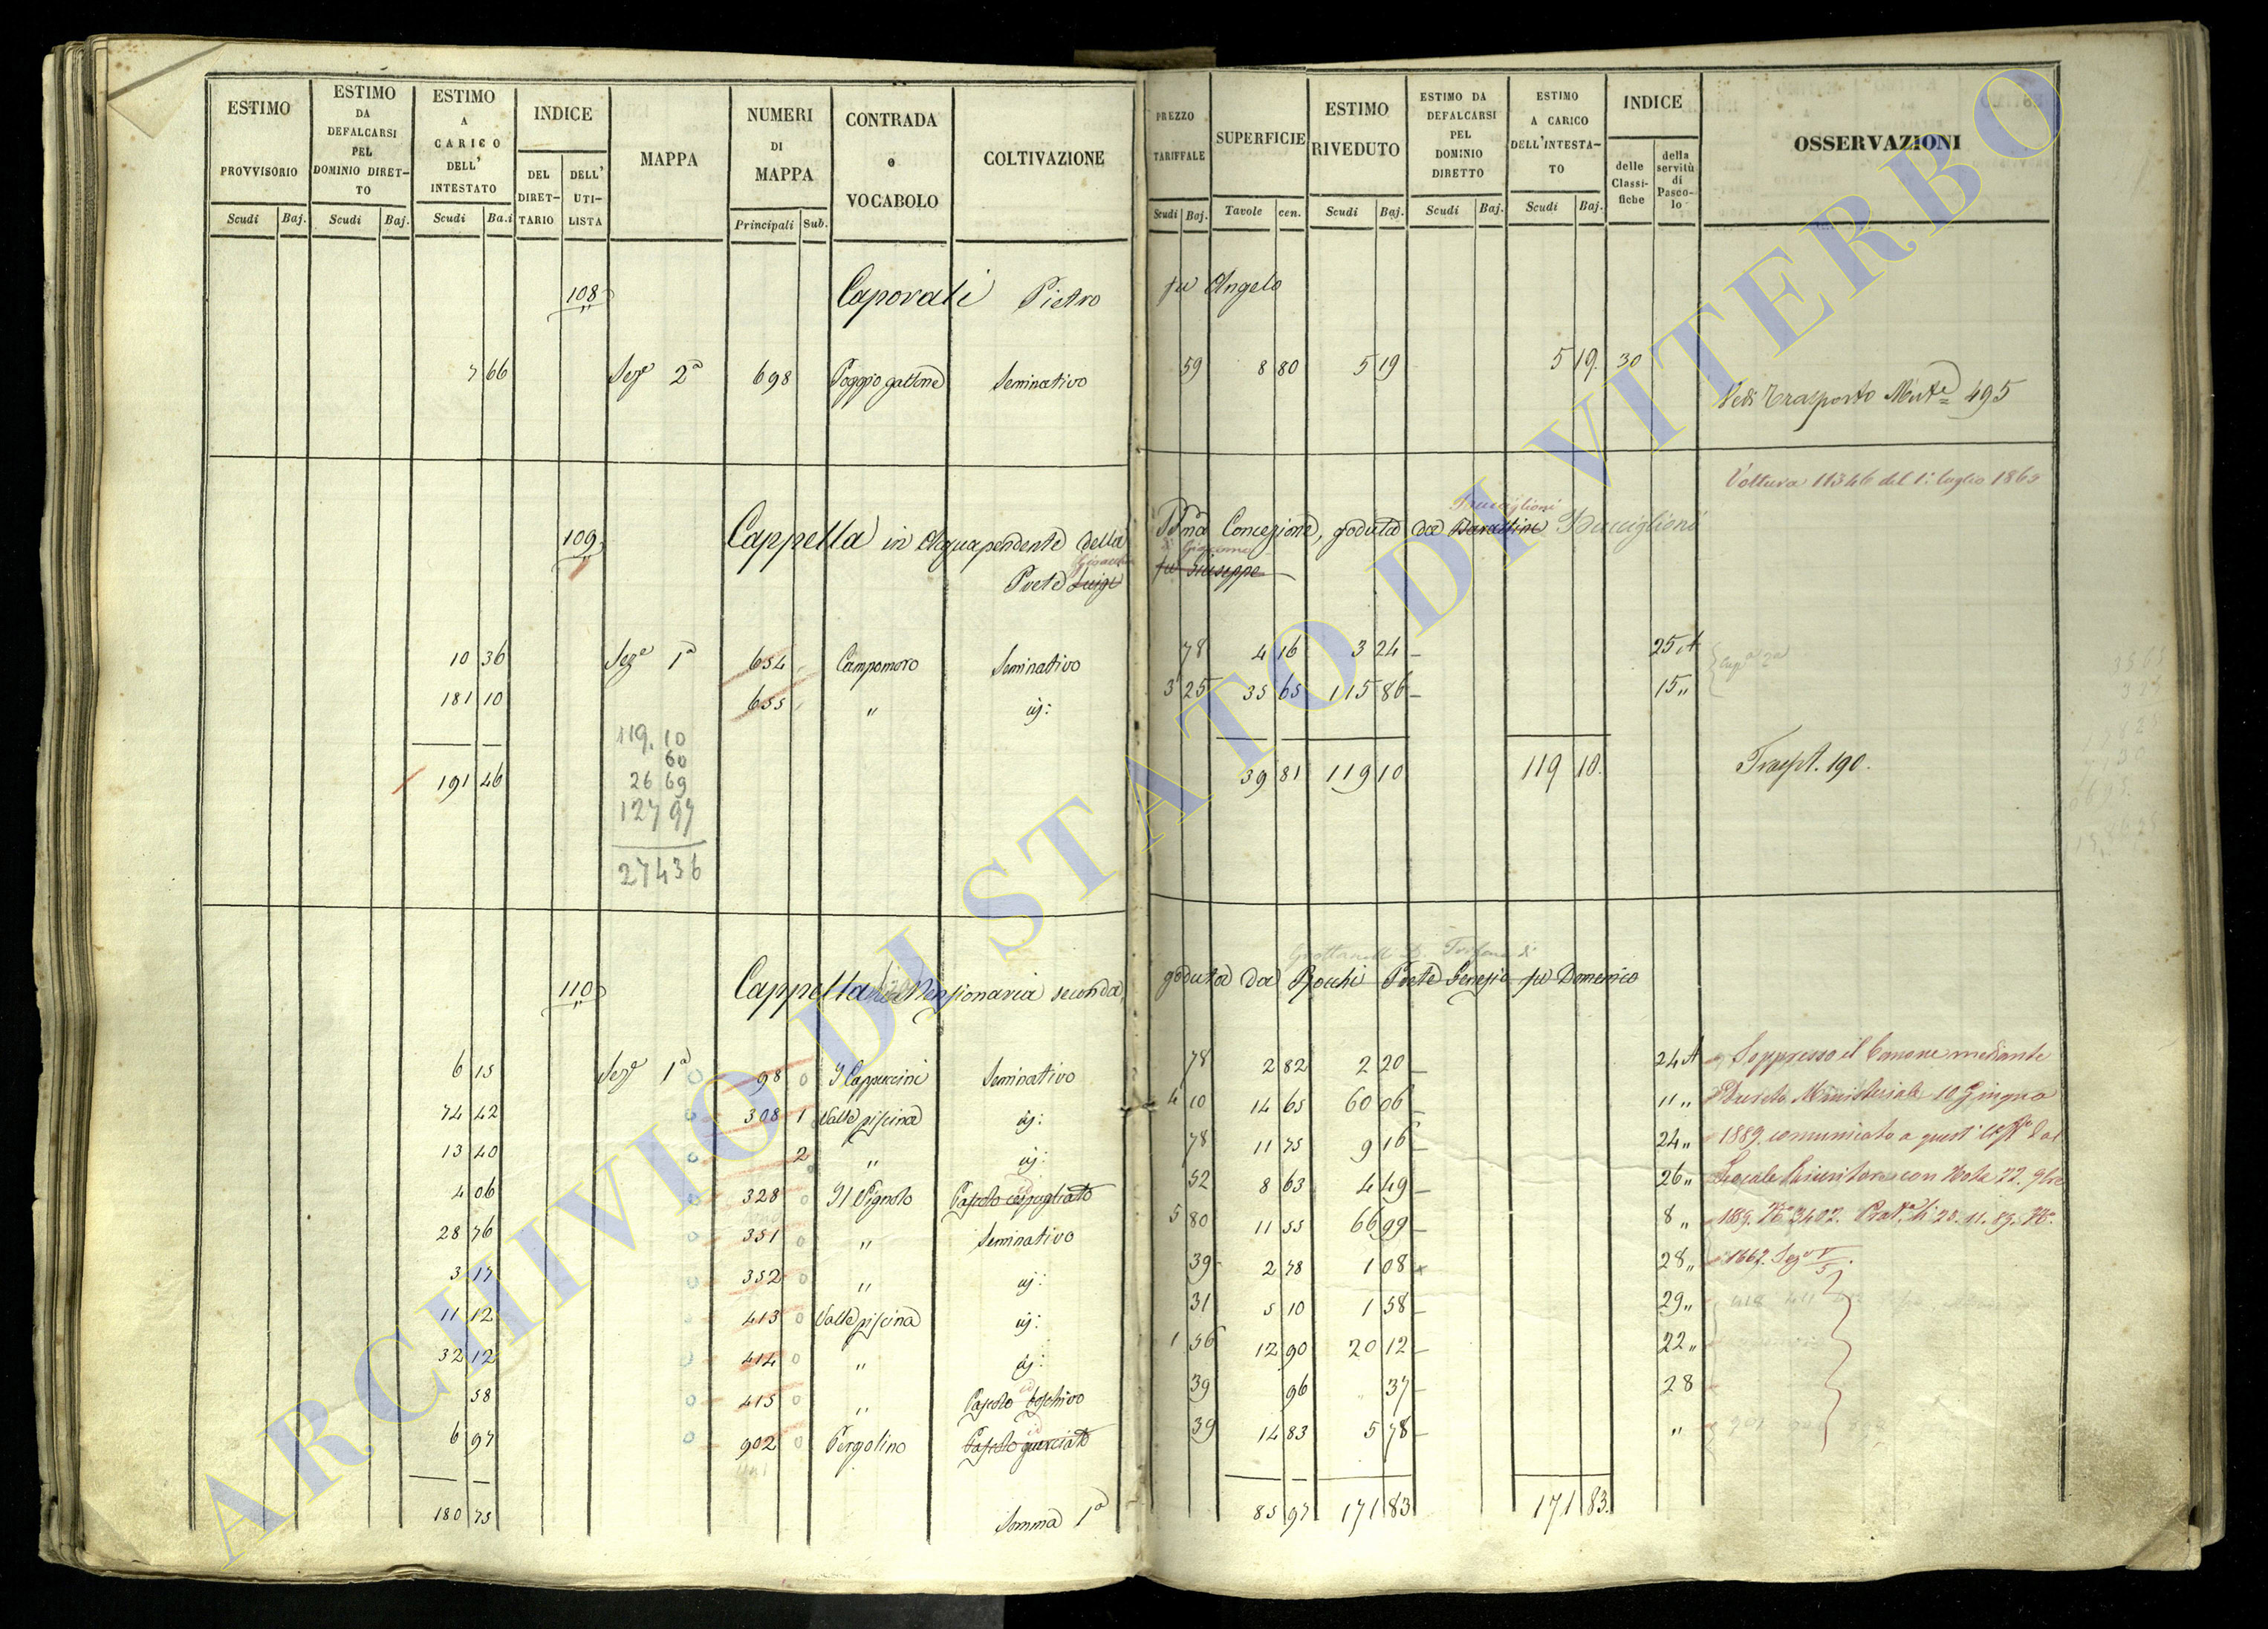 ESTIMO PROVVISORIO Scudi Baj. ESTIMO DA DEFALCARSI PEL DOMINIO DIRET-TO Scudi Baj. ESTIMO A CARICO DELL' INTESTATO Scudi Ba.i INDICE DEL DIRET-TARIO DELL' UTI-LISTA MAPPA NUMERI DI MAPPA Principali Sub. CONTRADA o VOCABOLO COLTIVAZIONE PREZZO TARIFFALE Scudi Baj. SUPERFICIE Tavole cen. ESTIMO RIVEDUTO Scudi Baj. ESTIMO DA DEFALCARSI PEL DOMINIO DIRETTO Scudi Baj. ESTIMO A CARICO DELL'INTESTA-TO Scudi Baj. INDICE delle Classi-fiche della servitù di Pasco-lo OSSERVAZIONI
108 Caporali Pietro fu Angelo
7 66 Seze 2a 698 Poggio gattone Seminativo 59 8 80 5 19 5 19 30
Vedi Trasporto Mute 495
Voltura 11346 del 1: luglio 1863
109 Cappella in Acquapendente della Concezione, goduta da
Prete Luigi fu Giuseppe
10 36 Seze 1a 654 Campomoro Seminativo 78 4 16 3 24 25 A
181 10 655 " id: 3 25 35 65 115 86 15 "
119. 10
60
26 69
127 97
274 36
191 46 39 81 119 10 119 10. Traspt. 190.
110 Cappellania Mensionaria seconda, goduta da Rocchi Prete Genesio fu Domenico
6 15 Seze 1a 98 I Cappuccini Seminativo 78 2 82 2 20 24 A Soppresso il Canone mediante
74 42 308 1 Valle piscina id: 4 10 14 65 60 06 11 " Decreto Ministeriale 10 Giugno
13 40 2 " id: 78 11 75 9 16 24 " 1889. comunicato a quest' Uff° dal
4 06 328 Il Vignolo Pascolo cespugliato 52 8 63 4 49 26 " Locale Ricevitore con Nota 22. 9bre
28 76 351 " Seminativo 5 80 11 55 66 99 8 " 1889. N° 3402. 25. 11. 89. N°.
3 17 352 " id: 39 2 78 1 08 28 " 1662.
11 12 413 Valle piscina id: 31 5 10 1 58 29 "
32 12 414 " id: 1 56 12 90 20 12 22 "
58 415 " Pascolo boschivo 39 96 37 28
6 97 902 Pergolino Pascolo querciato 39 14 83 5 78 "
180 75 Somma 1a 85 97 171 83 171 83.
ARCHIVIO DI STATO DI VITERBO